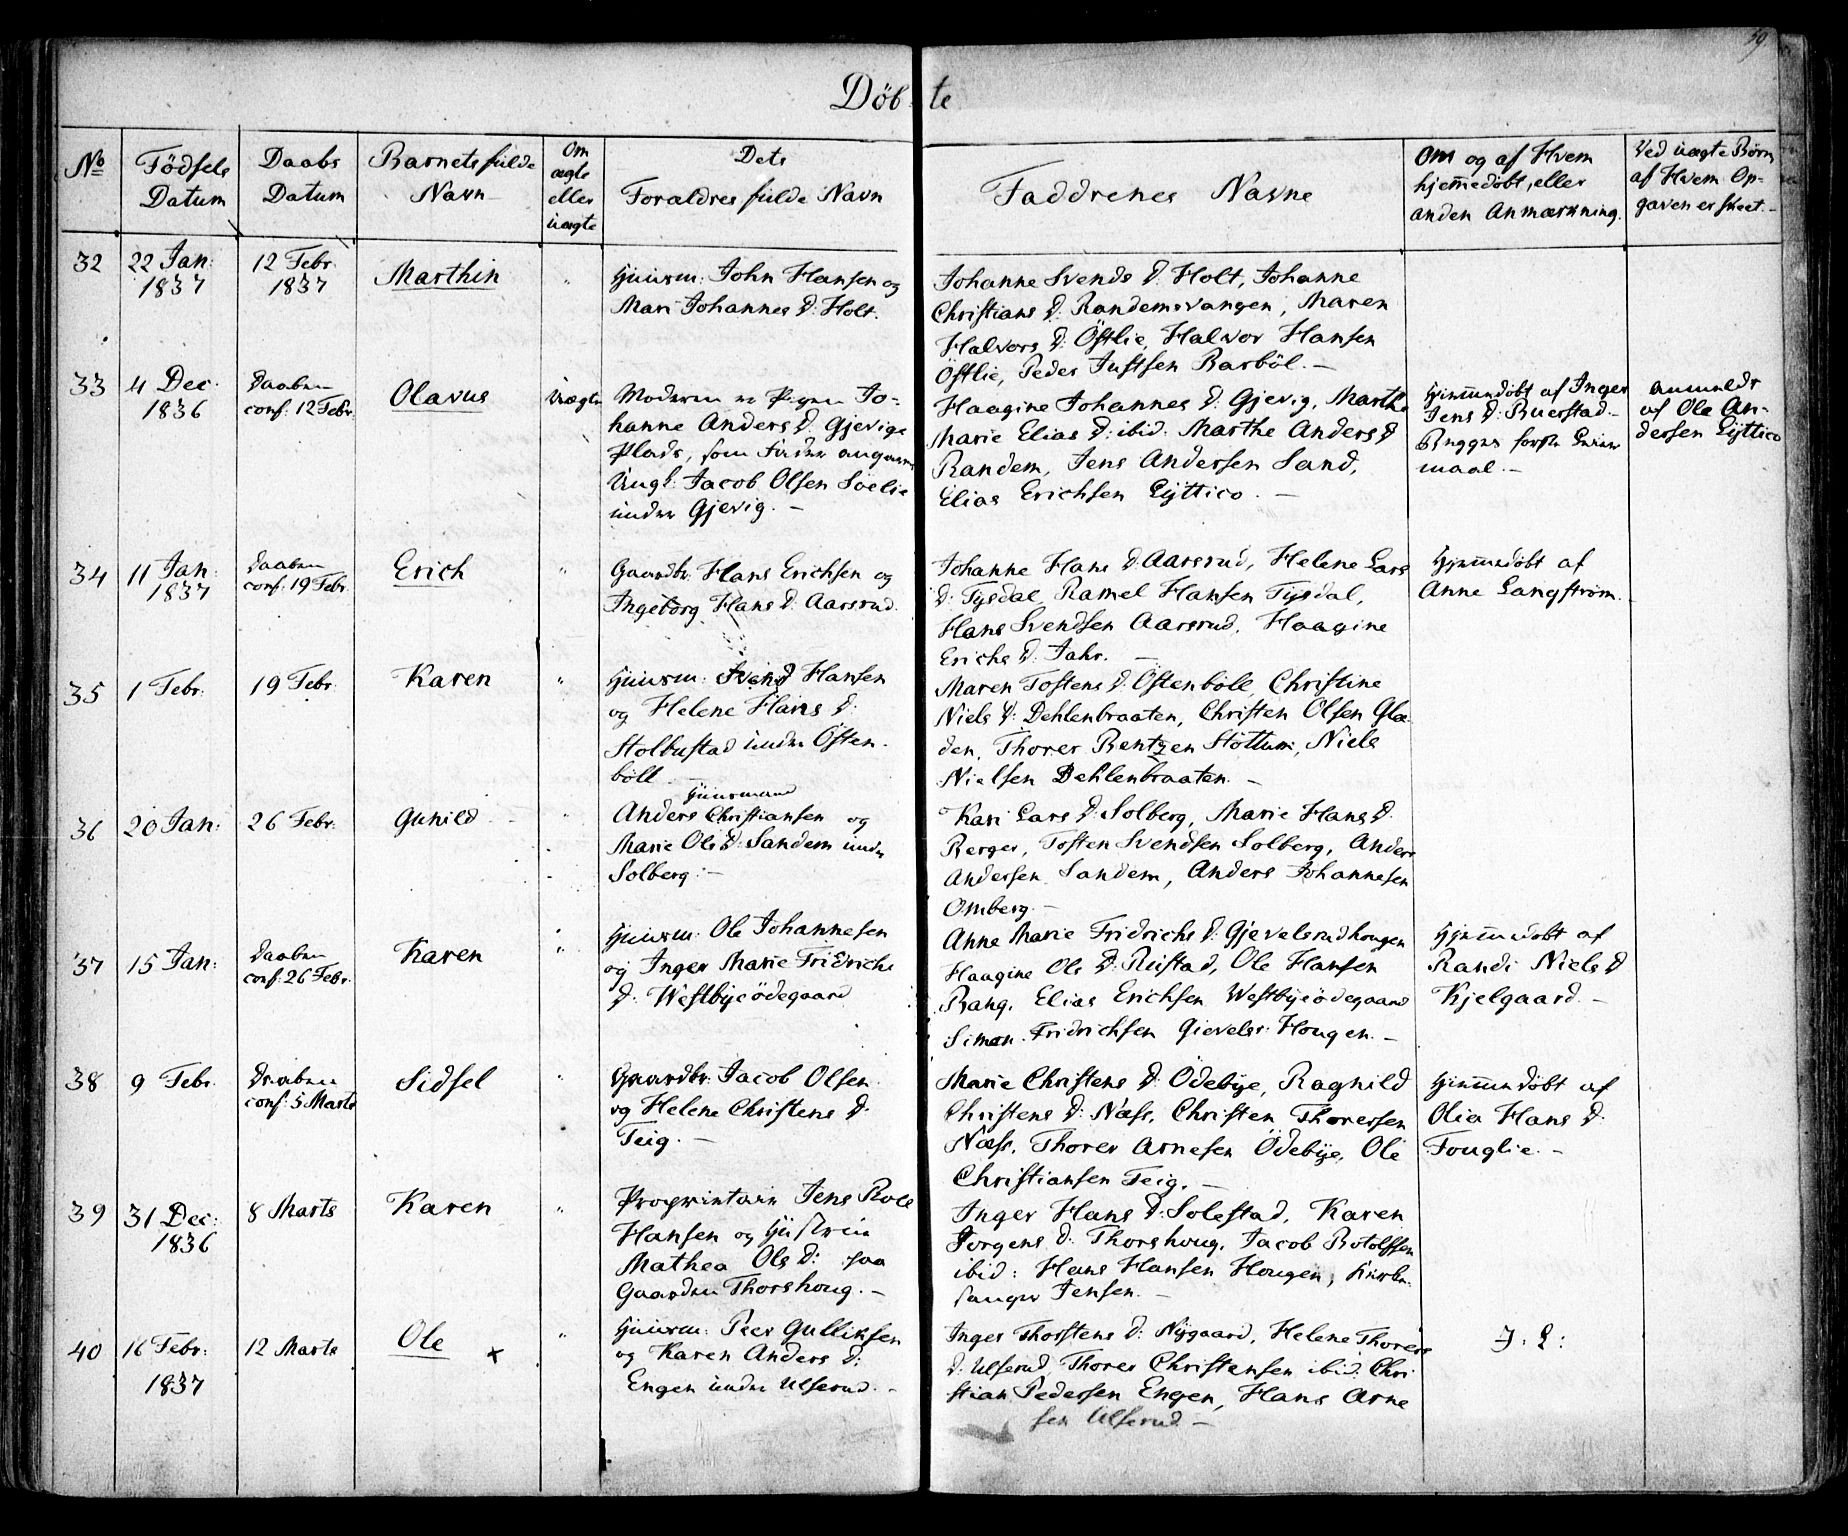 59
Döbte
No
Födsels Datum
Daabs Datum
Barnets fulde Navn
Om ægte eller uægte
Dets Foraldres fulde Navn
Faddrenes Navne
Om og af Hvem hjem̄edöbt, eller anden Anmærkning.
Ved uægte Börn af Hvem Opgaven er skeet.
32
22 Jan: 1837
12 Febr. 1837
Marthin
"
Huusm: John Hansen og
Mari Johannes D: Holt.
Johanne Svends D. Holt, Johanne
Christians D. Randemsvangen, Maren
Halvors D: Östlie, Halvor Hansen
Östlie, Peder Justsen Barböl. —
33
4 Dec. 1836
Daaben conf: 12 Febr.
Olavus
Uægte
Moderen er Pigen Jo-
hanne Anders D. Gjevigs
Plads, som Fader angaves
Ungk: Jacob Olsen Söelie
under Gjevig. —
Haagine Johannes D. Gjevig, Marthe
Marie Elias D: ibid. Marthe Anders D
Randem, Jens Andersen Sand,
Elias Erichsen Lyttico. —
Hjemmedöbt af Inger
Jens D: Buerstad.
Begges förste Leier
maal. —
anmeldt
af Ole An-
dersen Lyttico
34
11 Jan: 1837
Daaben conf: 19 Febr.
Erich
"
Gaardbr. Hans Erichsen og
Ingeborg Hans D. Aarsrud.
Johanne Hans D. Aarsrud, Helene Lars
D: Tysdal, Ramel Hansen Tysdal,
Hans Svendsen Aarsrud, Haagine
Erichs D. Jahr. —
35
1 Febr.
19 Febr.
Karen
"
Huusm: Svend Hansen
og Helene Hans D:
Stolbustad under Östen-
böll —
Maren Tostens D: Östenböll, Christine
Niels D: Dehlenbraaten, Christen Olsen Glæ-
den, Thorer Bentzen Stöttum, Niels
Nielsen Dehlenbraaten. —
36
20 Jan:
26 Febr.
Gunild
"
Huusmand
Anders Christiansen og
Marie Ols D. Sandem under
Solberg. —
Kari Lars D: Solberg, Marie Hans D.
Berger, Tosten Svendsen Solberg, Anders
Andersen Sandem, Anders Johannesen
Omberg. —
37
15 Jan:
Daaben conf: 26 Febr.
Karen
"
Huusm: Ole Johannesen
og Inger Marie Fridrichs
D: Westbyeödegaard
Anne Marie Fridrichs D: Gjevelsrudhougen
Haagine Ols D. Rustad, Ole Hansen
Bang, Elias Erichsen Westbyeödegaard
Simen Fridrichsen Gievelsr: Hougen. —
Hjemmedöbt af
Randi Niels D
Kjelgaard. —
38
9 Febr.
Daaben conf: 5 Marts
Sidsel
"
Gaardbr. Jacob Olsen
og Helene Christens D.
Teig. —
Marie Christens D: Ödebye, Ragnild
Christens D: Næss, Christen Thoressen
Næss, Thorer Arnesen Ödebye, Ole
Christiansen Teig. —
Hjemmedöbt af
Olia Hans D.
Fouglie. —
39
31 Dec: 1836
8 Marts
Karen
"
Proprietair Jens Roll
Hansen og Hustrue
Mathea Ols D: paa
Gaarden Thorshoug. —
Inger Hans D: Solestad, Karen
Jorgens D. Thorshoug, Jacob Botolfssen
ibid: Hans Hansen Hougen, Kirke-
sanger Jensen. —
40
16 Febr: 1837
12 Marts
Ole
x
"
Huusm: Peer Gulliksen
og Karen Anders D:
Engen under Ulserud. —
Inger Thorstens D: Nygaard, Helene Thorers
D: Ulserud Thorer Christensen ibid: Chri
stian Pedersen Engen, Hans Arne
sen Ulserud —
J: L: